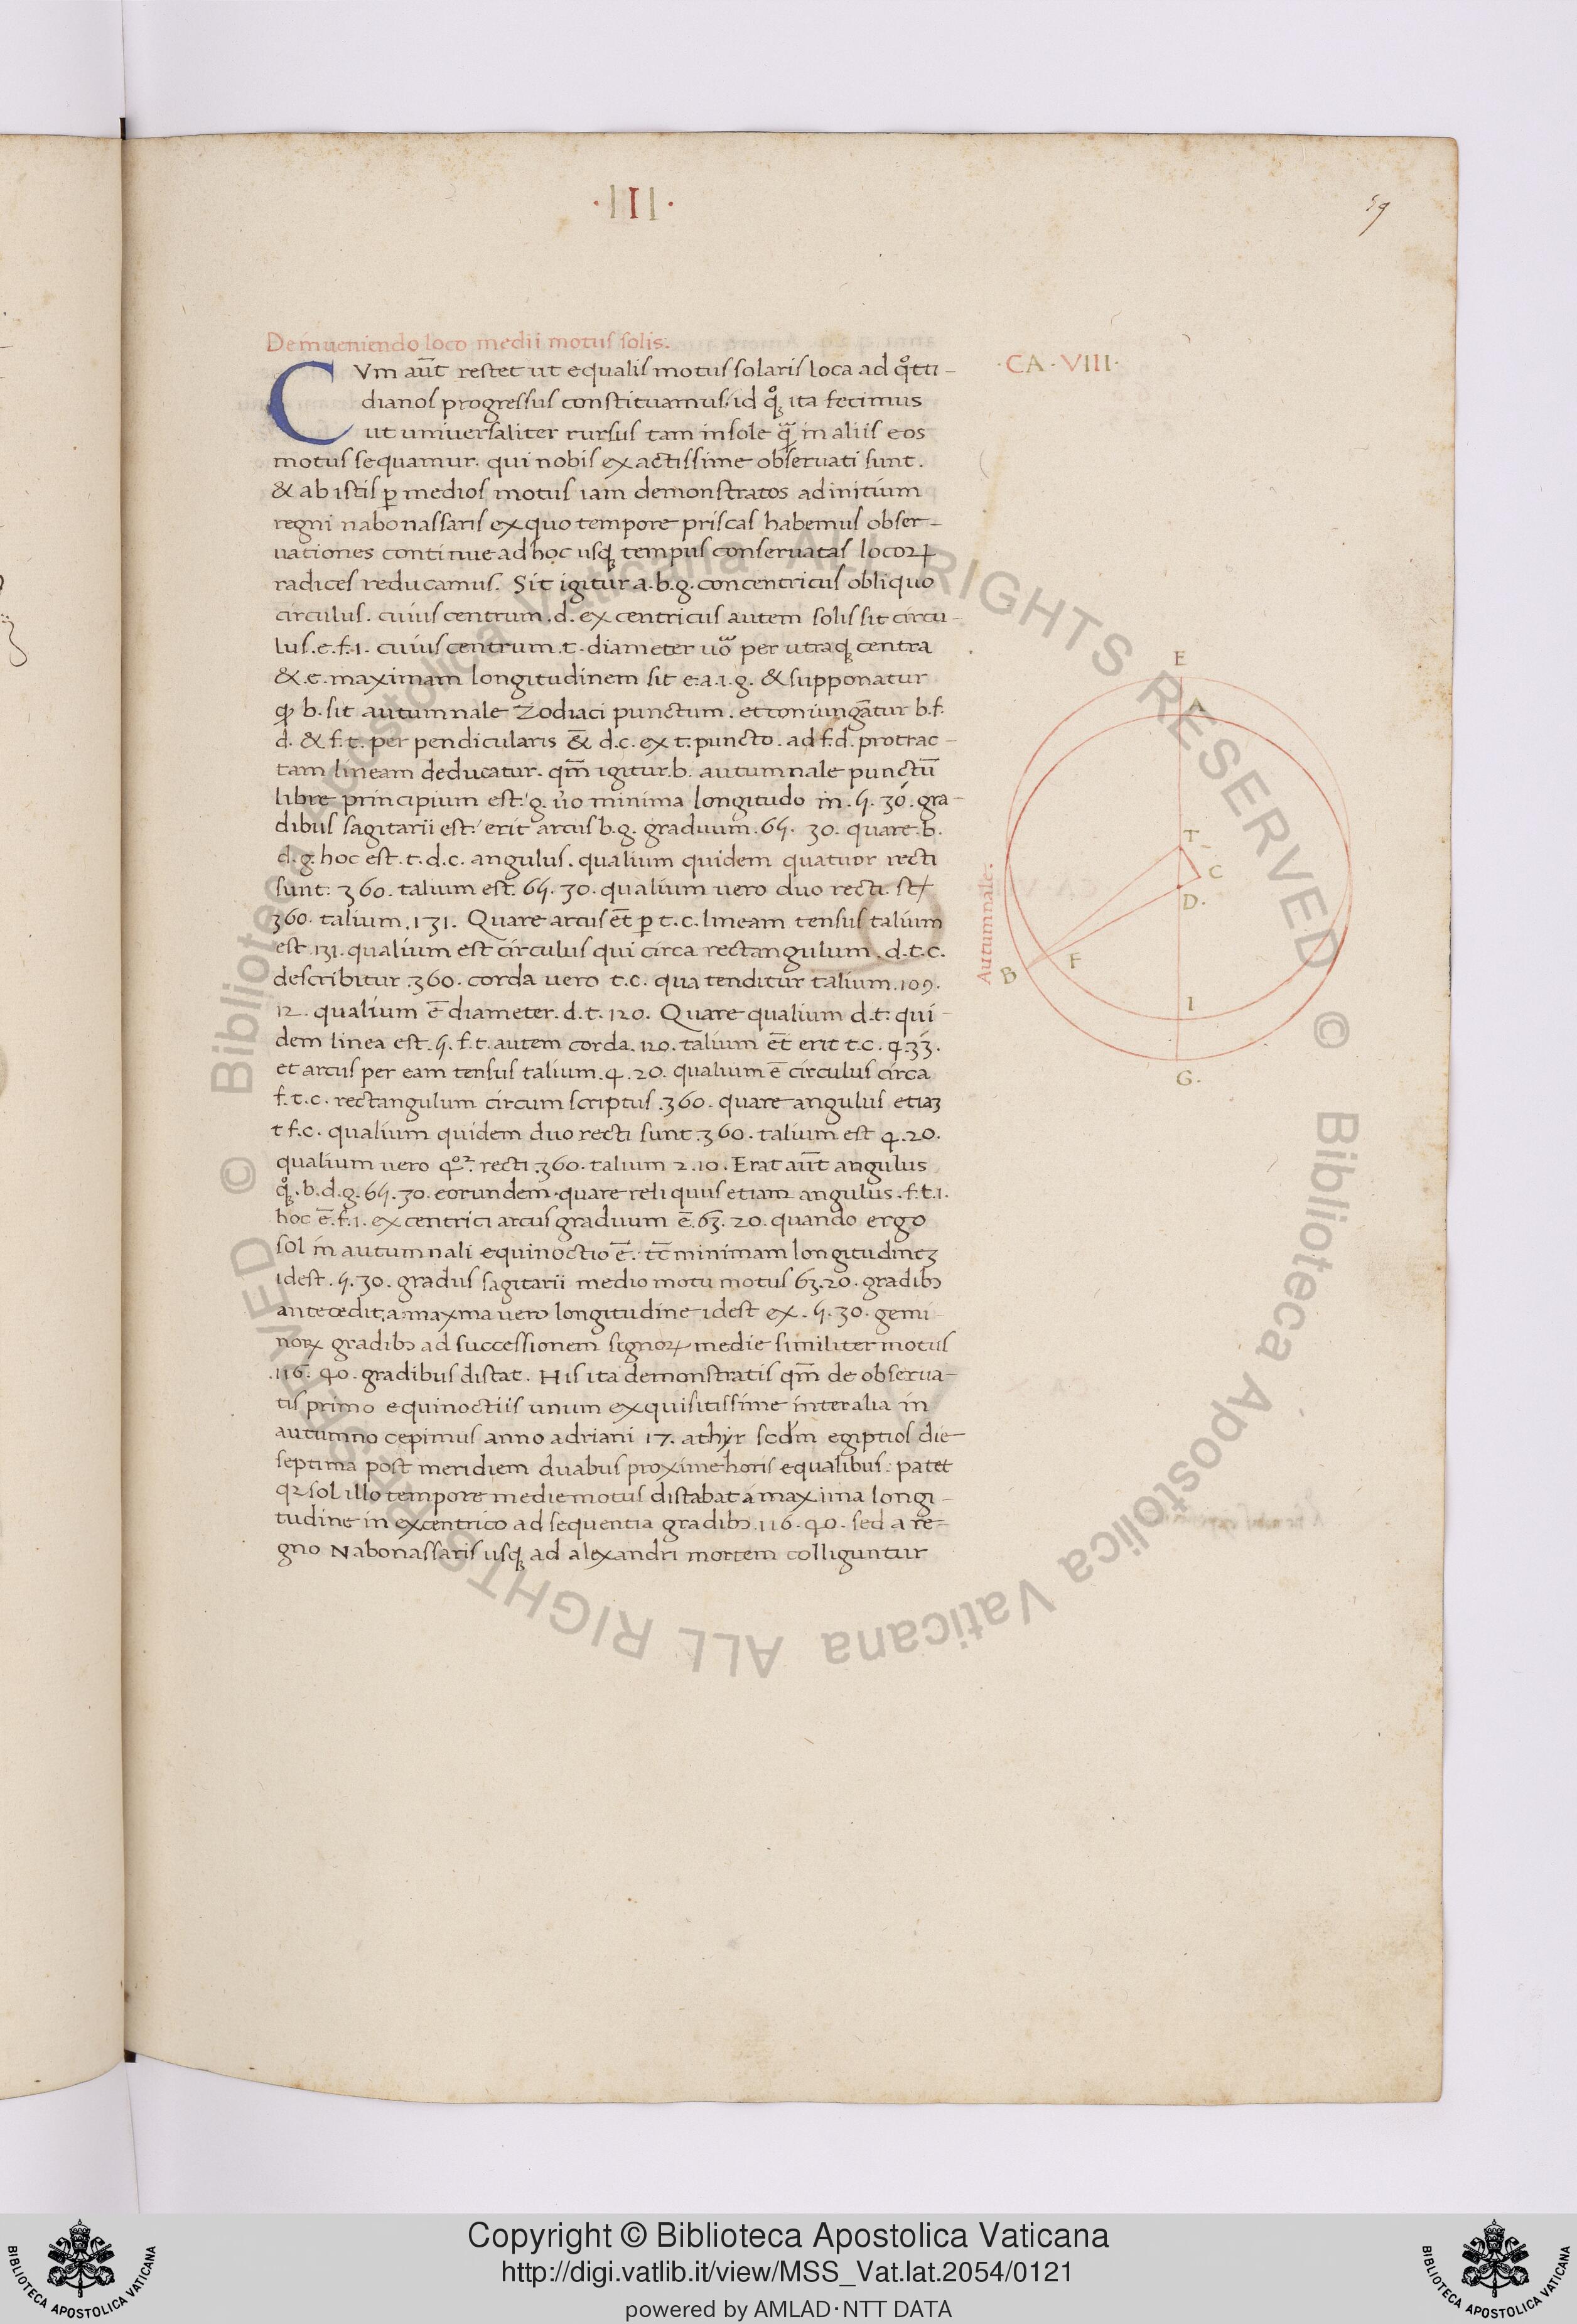 ·III·
59
De inueniendo loco medii motus solis.
·CA·VIII·
CVm aut̅ restet ut equalis motus solaris loca ad qͦtti-
dianos progressus constituamus: id qͦꝫ ita fecimus
ut uniuersaliter rursus tam in sole qꝫ in aliis eos
motus sequamur. qui nobis exactissime obseruati sunt.
& ab istis ꝑ medios motus iam demonstratos ad initium
regni nabonassaris ex quo tempore priscas habemus obser-
uationes continue ad hoc usqꝫ tempus conseruatas locoꝝ
radices reducamus. Sit igitur a.b.g. concentricus obliquo
circulus. cuius centrum .d. excentricus autem solis sit circu-
lus .e.f.i. cuius centrum .t. diameter uo̅ per utraqꝫ centra
& .e. maximam longitudinem sit e.a.i.g. & supponatur
ꝙ b. sit autumnale Zodiaci punctum. et coniunga̅tur b.f.
d. & f.t. perpendicularis & d.c. ex t. puncto. ad f.d. protrac-
tam lineam deducatur. qm̅ igitur .b. autumnale punctu̅
libre principium est: g. u̅o minima longitudo in .5. 30. gra-
dibus sagitarii est: erit arcus b.g. graduum .65. 30. quare .b.
d.g. hoc est .t.d.c. angulus. qualium quidem quatuor recti
sunt: 360. talium est. 65. 30. qualium uero duo recti. st̅
360. talium .131. Quare arcus et̅ ꝑ t.c. lineam tensus talium
est .131. qualium est circulus qui circa rectangulum .d.t.c.
describitur .360. corda uero t.c. qua tenditur talium .109.
12. qualium e̅ diameter. d.t. 120. Quare qualium d.t. qui-
dem linea est .5. f.t. autem corda .120. talium et̅ erit t.c. 4.33.
et arcus per eam tensus talium .4.20. qualium e̅ circulus circa
f.t.c. rectangulum circumscriptus .360. quare angulus etiaꝫ
t f.c. qualium quidem duo recti sunt .360. talium est 4.20.
qualium uero 4oꝛ. recti .360. talium 2.10. Erat aut̅ angulus
qͦꝫ .b.d.g. 65.30. eorundem. quare reliquus etiam angulus .f.t.i.
hoc e̅. f.i. excentrici arcus graduum e̅. 63. 20. quando ergo
sol in autumnali equinoctio e̅. tc̅ minimam longitudineꝫ
idest .5.30. gradus sagitarii medio motu motus 63.20. gradibꝯ
antecedit. a maxma uero longitudine idest ex .5.30. gemi-
noꝝ gradibꝯ ad successionem signoꝝ medie similiter motus
.116. 40. gradibus distat. His ita demonstratis qm̅ de obserua-
tis primo equinoctiis unum exquisitissime inter alia in
autumno cepimus anno adriani 17. athyr scd̅m egiptios die
septima post meridiem duabus proxime horis equalibus: patet
qꝛ sol illo tempore medie motus distabat a maxima longi-
tudine in excentrico ad sequentia gradibꝯ .116. 40. sed a re-
gno Nabonassaris usqꝫ ad alexandri mortem colliguntur
E
A
T
C
D.
Autumnale.
B
F
I
G.
© Biblioteca Apostolica Vaticana ALL RIGHTS RESERVED
© Biblioteca Apostolica Vaticana ALL RIGHTS RESERVED
Copyright © Biblioteca Apostolica Vaticana
http://digi.vatlib.it/view/MSS_Vat.lat.2054/0121
powered by AMLAD·NTT DATA
BIBLIOTECA APOSTOLICA VATICANA
BIBLIOTECA APOSTOLICA VATICANA